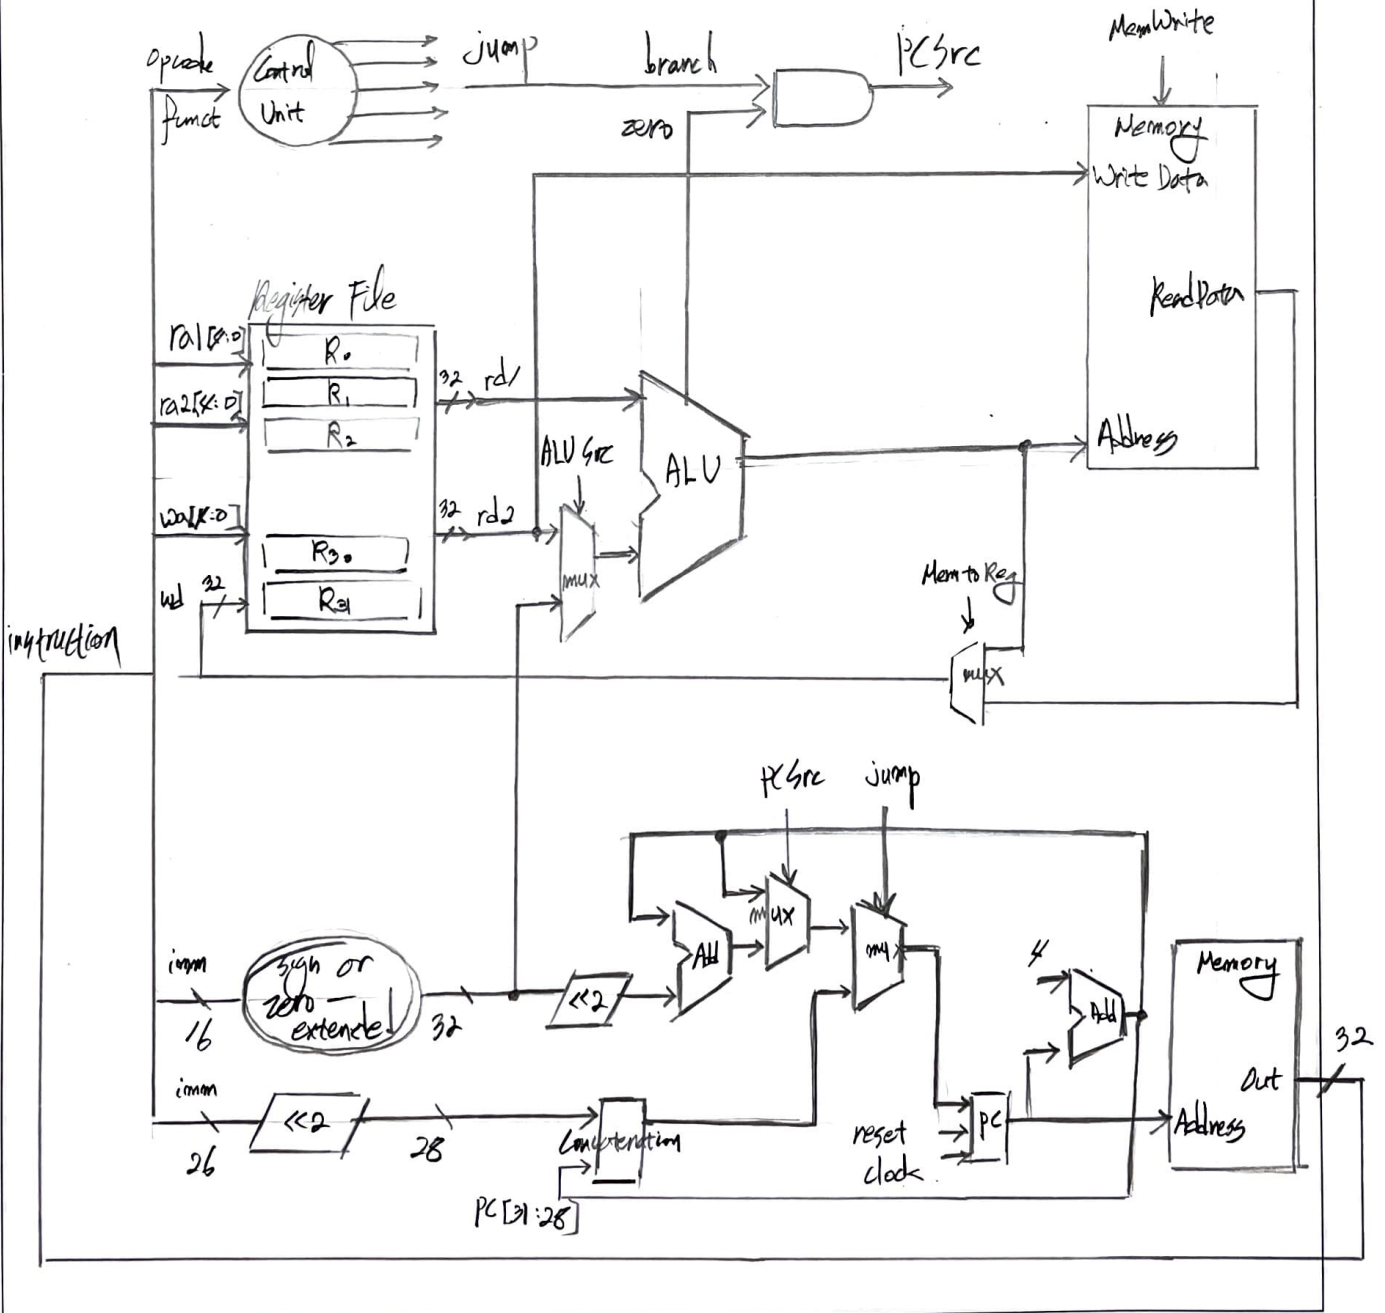 MemWrite
opcode
funct
Control
Unit
jump
branch
PCSrc
zero
Memory
Write Data
ReadData
Address
Register File
ra1[4:0]
ra2[4:0]
wa[4:0]
wd 32
R0
R1
R2
R30
R31
32 rd1
32 rd2
ALU Src
mux
ALU
MemtoReg
mux
instruction
PCSrc
jump
imm
16
sign or
zero —
extended
32
<<2
Add
mux
mux
4
Add
Memory
Out
Address
32
imm
26
<<2
28
Concatenation
PC[31:28]
reset
clock
PC